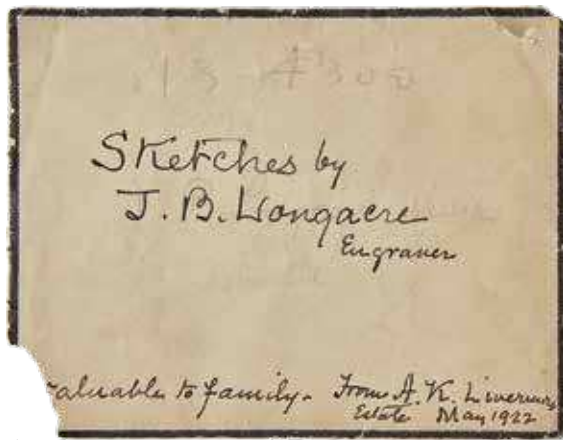 Sketches by
J. B. Longacre
Engraver
valuable to family. From A. K.
Estate May 1922